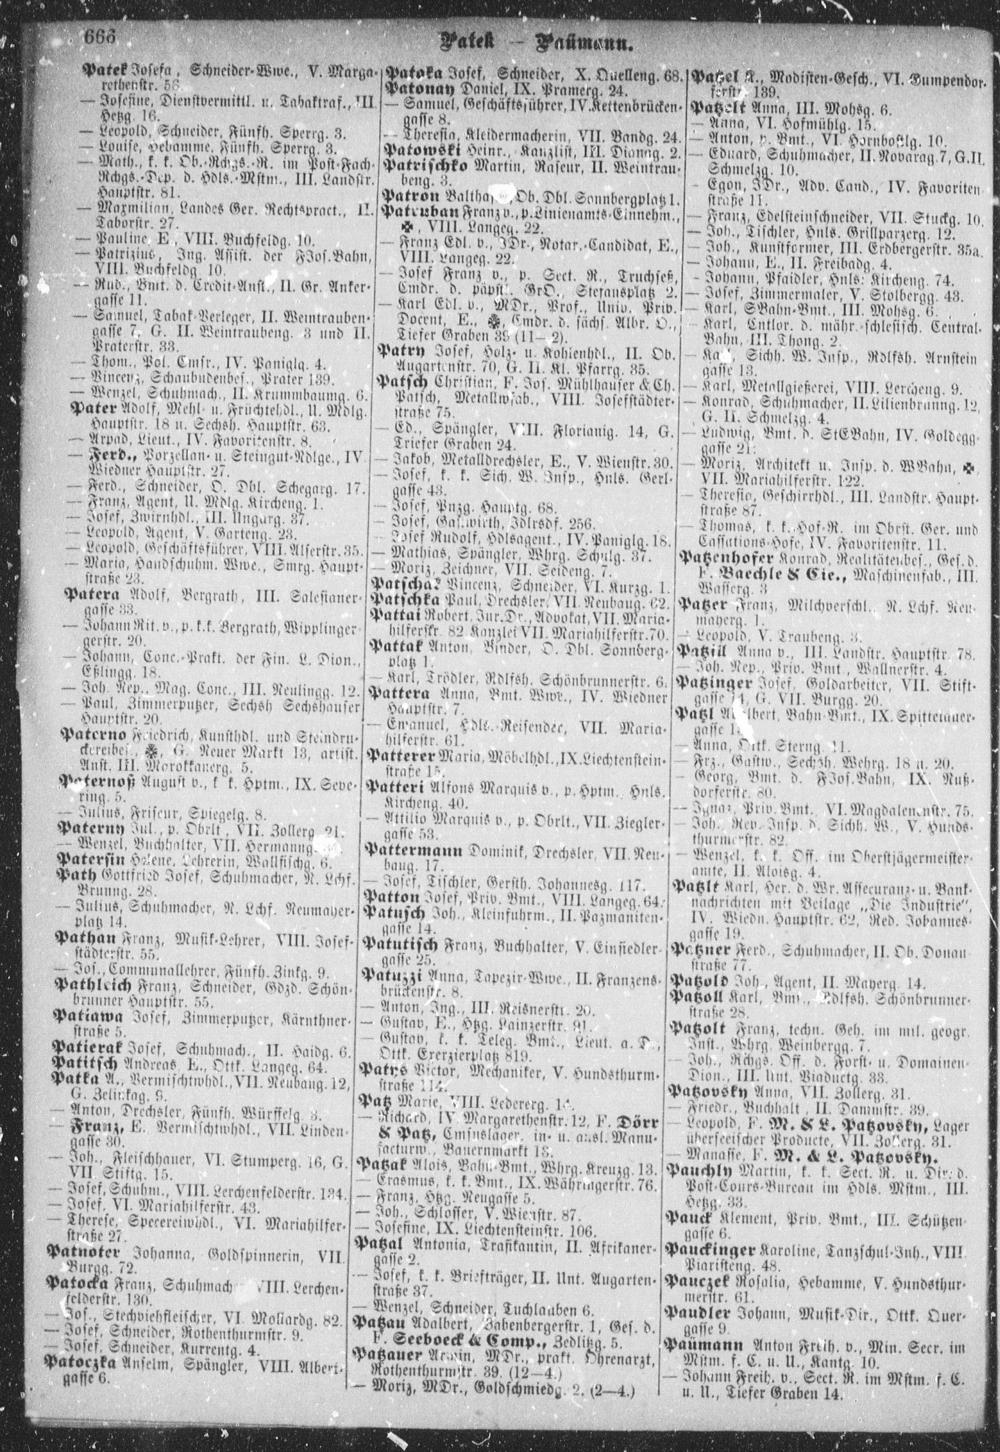 666
Patek — Paümann.
Patek Josefa, Schneider-Wwe., V. Marga-
rethenstr. 56
— Josefine, Dienstvermittl. u. Tabaktraf., III.
Hetzg. 16.
— Leopold, Schneider, Fünfh. Sperrg. 3.
— Louise, Hebamme, Fünfh. Sperrg. 3.
— Math., k. k. Ob.-Rchgs.-R. im Post-Fach-
Rchgs.-Dep. d. Hdls.-Mstm., III. Landstr.
Hauptstr. 81.
— Maximilian, Landes Ger. Rechtspract., II.
Taborstr. 27.
— Pauline, E., VIII. Buchfeldg. 10.
— Patrizius, Ing. Assist. der FJos.Bahn,
VIII. Buchfeldg. 10.
— Rud., Bmt. d. Credit-Anst., II. Gr. Anker-
gasse 11.
— Samuel, Tabak-Verleger, II. Weintrauben-
gasse 7, G. II. Weintraubeng. 3 und II.
Praterstr. 33.
— Thom., Pol. Cmsr., IV. Paniglg. 4.
— Vincenz, Schaubudenbes., Prater 139.
— Wenzel, Schuhmach., II. Krummbaumg. 6.
Pater Adolf, Mehl- u. Früchtehdl., U. Mdlg.
Hauptstr. 18 u. Sechsh. Hauptstr. 63.
— Arpad, Lieut., IV. Favoritenstr. 8.
— Ferd., Porzellan- u. Steingut-Ndlge., IV.
Wiedner Hauptstr. 27.
— Ferd., Schneider, O. Dbl. Schegarg. 17.
— Franz, Agent, U. Mdlg. Kircheng. 1.
— Josef, Zwirnhdl., III. Ungarg. 37.
— Leopold, Agent, V. Garteng. 23.
— Leopold, Geschäftsführer, VIII. Alserstr. 35.
— Maria, Handschuhm. Wwe., Smrg. Haupt-
straße 23.
Patera Adolf, Bergrath, III. Salesianer-
gasse 33.
— Johann Rit. v., p. k. k. Bergrath, Wipplinger-
gerstr. 20.
— Johann, Conc.-Prakt. der Fin. L. Dion.,
Eßlingg. 18.
— Joh. Nep., Mag. Conc., III. Neulingg. 12.
— Paul, Zimmerputzer, Sechsh. Sechshauser
Hauptstr. 20.
Paterno Friedrich, Kunsthdl. und Steindru-
ckereibes., ✠, G. Neuer Markt 13, artist.
Anst. III. Marokkanerg. 5.
Paternoß August v., k. k. Hptm., IX. Seve-
ring. 5.
— Julius, Friseur, Spiegelg. 8.
Paterny Jul., p. Obrlt., VII. Zollerg. 21.
— Wenzel, Buchhalter, VII. Hermanng.
Patersin Helene, Lehrerin, Wallfischg. 6.
Path Gottfried Josef, Schuhmacher, N. Lchf.
Brunng. 28.
— Julius, Schuhmacher, N. Lchf. Neumayer-
platz 14.
Pathan Franz, Musik-Lehrer, VIII. Josef-
städterstr. 55.
— Jos., Communallehrer, Fünfh. Zinkg. 9.
Pathleich Franz, Schneider, Gdzd. Schön-
brunner Hauptstr. 55.
Patiawa Josef, Zimmerputzer, Kärnthner-
straße 5.
Patierak Josef, Schuhmach., II. Haidg. 6.
Patitsch Andreas, E., Ottk. Langeg. 64.
Patka A., Vermischtwhdl., VII. Neubaug. 12,
G. Zelinkag. 9.
— Anton, Drechsler, Fünfh. Würffelg. 3.
— Franz, E. Vermischtwhdl., VII. Linden-
gasse 30.
— Joh., Fleischhauer, VI. Stumperg. 16, G.
VII Stiftg. 15.
— Josef, Schuhm., VIII. Lerchenfelderstr. 134.
— Josef, VI. Mariahilferstr. 43.
— Therese, Specereiwhdl., VI. Mariahilfer-
straße 27.
Patnoter Johanna, Goldspinnerin, VII.
Burgg. 72.
Patocka Franz, Schuhmach VIII. Lerchen-
felderstr. 130.
— Jos., Stechviehfleischer, VI. Mollardg. 82.
— Josef, Schneider, Rothenthurmstr. 9.
— Josef, Schneider, Kurrentg. 4.
Patoczka Anselm, Spängler, VIII. Albert-
gasse 6.
Patoka Josef, Schneider, X. Quelleng. 68.
Patonay Daniel, IX. Pramerg. 24.
— Samuel, Geschäftsführer, IV. Kettenbrücken-
gasse 8.
— Theresia, Kleidermacherin, VII. Bandg. 24.
Patowski Heinr., Kanzlist, III. Dianng. 2.
Patrischko Martin, Raseur, II. Weintrau-
beng. 3.
Patron Ob. Dbl. Sonnbergplatz 1.
Patruban Franz v., p. Linienamts-Einnehm.,
✠, VIII. Langeg. 22.
— Franz Edl. v., JDr., Notar.-Candidat, E.,
VIII. Langeg. 22.
— Josef Franz v., p. Sect. R., Truchseß,
Cmdr. d. päpstl. GrO., Stefansplatz 2.
— Karl Edl. v., MDr., Prof., Univ. Priv.
Docent, E., ✠, Cmdr. d. sächs. Albr. O.,
Tiefer Graben 39 (11—2).
Patry Josef, Holz- u. Kohlenhdl., II. Ob.
Augartenstr. 70, G. II. Kl. Pfarrg. 35.
Patsch Christian, F. Jos. Mühlhauser & Ch.
Patsch, Metallwfab., VIII. Josefstädter-
straße 75.
— Ed., Spängler, VIII. Florianig. 14, G.
Tiefer Graben 24.
— Jakob, Metalldrechsler, E., V. Wienstr. 30.
— Josef, k. k. Sich. W. Insp., Hnls. Gerl-
gasse 43.
— Josef, Pnzg. Hauptg. 68.
— Josef, Gastwirth, Jdlrsdf. 256.
— Josef Rudolf, Hdlsagent, IV. Paniglg. 18.
— Mathias, Spängler, Whrg. Schulg. 37.
— Moriz, Zeichner, VII. Seideng. 7.
Patschaz Vincenz, Schneider, VI. Kurzg. 1.
Patschka Paul, Drechsler, VII. Neubaug. 62.
Pattai Robert, Jur. Dr., Advokat, VII. Maria-
hilferstr. 82 Kanzlei VII. Mariahilferstr. 70.
Pattak Anton, Binder, O. Dbl. Sonnberg-
platz 1.
— Karl, Trödler, Rdlfsh. Schönbrunnerstr. 6.
Pattera Anna, Bmt. Wwe., IV. Wiedner
Hauptstr. 7.
— Emanuel, Hdls.-Reisender, VII. Maria-
hilferstr. 61.
Patterer Maria, Möbelhdl., IX. Liechtenstein-
straße 15.
Patteri Alfons Marquis v., p. Hptm. Hnls.
Kircheng. 40.
— Attilio Marquis v., p. Obrlt., VII. Ziegler-
gasse 53.
Pattermann Dominik, Drechsler, VII. Neu-
baug. 17.
— Josef, Tischler, Gersth. Johannesg. 117.
Patton Josef, Priv. Bmt., VIII. Langeg. 64.
Patusch Joh., Kleinfuhrm., II. Pazmaniten-
gasse 14.
Patutisch Franz, Buchhalter, V. Einsiedler-
gasse 25.
Patuzzi Anna, Tapezir-Wwe., II. Franzens-
brückenstr. 8.
— Anton, Ing., III. Reisnerstr. 20.
— Gustav, E., Htzg. Lainzerstr. 91.
— Gustav, k. k. Teleg. Bmt., Lieut. a. D.,
Ottk. Exerzierplatz 819.
Patys Victor, Mechaniker, V. Hundsthurm-
straße 114.
Patz Marie, VIII. Ledererg.
— Richard, IV. Margarethenstr. 12, F. Dörr
& Patz, Cmsnslager. in- u. ausl. Manu-
facturw., Bauernmarkt 13.
Patzak Alois, Bahn-Bmt., Whrg. Kreuzg. 13.
— Erasmus, k. k. Bmt., IX. Währingerstr. 76.
— Franz, Htzg. Neugasse 5.
— Joh., Schlosser, V. Wienstr. 87.
— Josefine, IX. Liechtensteinstr. 106.
Patzal Antonia, Trafikantin, II. Afrikaner-
gasse 2.
— Josef, k. k. Briefträger, II. Unt. Augarten-
straße 37.
— Wenzel, Schneider, Tuchlauben 6.
Patzau Adalbert, Babenbergerstr. 1, Ges. d.
F. Seeboeck & Comp., Zedlitzg. 5.
Patzauer Armin, MDr., prakt. Ohrenarzt,
Rothenthurmstr. 39. (12—4.)
— Moriz, MDr., Goldschmiedg. 2. (2—4.)
Patzel A., Modisten-Gesch., VI. Gumpendor-
ferstr. 139.
Patzelt Anna, III. Mohsg. 6.
— Anna, VI. Hofmühlg. 15.
— Anton, p. Bmt., VI. Hornbostlg. 10.
— Eduard, Schuhmacher, II. Novarag. 7, G. II.
Schmelzg. 10.
— Egon, JDr., Adv. Cand., IV. Favoriten-
straße 11.
— Franz, Edelsteinschneider, VII. Stuckg. 10.
— Joh., Tischler, Hnls. Grillparzerg. 12.
— Joh., Kunstformer, III. Erdbergerstr. 35a.
— Johann, E., II. Freibadg. 4.
— Johann, Pfaidler, Hnls. Kircheng. 74.
— Josef, Zimmermaler, V. Stolbergg. 43.
— Karl, SBahn-Bmt., III. Mohsg. 6.
— Karl, Cntlor. d. mähr.-schlesisch. Central-
Bahn, III. Thong. 2.
— Sichh. W. Insp., Rdlfsh. Arnstein
gasse 13.
— Karl, Metallgießerei, VIII. Lercheng. 9.
— Konrad, Schuhmacher, II. Lilienbrunng. 12,
G. II. Schmelzg. 4.
— Ludwig, Bmt. d. StEBahn, IV. Goldegg-
gasse 21.
— Moriz, Architekt u. Insp. d. WBahn, ✠,
VII. Mariahilferstr. 122.
— Theresie, Geschirrhdl., III. Landstr. Haupt-
straße 87.
— Thomas, k. k. Hof-R. im Obrst. Ger. und
Cassations-Hofe, IV. Favoritenstr. 11.
Patzenhofer Konrad, Realitätenbes., Ges. d.
F. Baechle & Cie., Maschinenfab., III.
Wasserg. 3
Patzer Franz, Milchverschl., N. Lchf. Neu-
mayerg. 1.
— Leopold, V. Traubeng. 3.
Patzill Anna v., III. Landstr. Hauptstr. 78.
— Joh. Nep., Priv. Bmt., Wallnerstr. 4.
Patzinger Josef, Goldarbeiter, VII. Stift-
gasse 14, G. VII. Burgg. 20.
Patzl Adalbert, Bahn-Bmt., IX. Spittelauer-
gasse
— Anna, Ottk. Sterng. 11.
— Frz., Gastw., Sechsh. Wehrg. 18 u. 20.
— Georg, Bmt. d. FJos.Bahn, IX. Nuß-
dorferstr. 80.
— Ignaz, Priv. Bmt., VI. Magdalenenstr. 75.
— Joh., Rev. Insp. d. Sichh. W., V. Hunds-
thurmerstr. 82.
— Wenzel, k. k. Off. im Oberstjägermeister-
amte, II. Aloisg. 4.
Patzlt Karl, Her. d. Wr. Assecuranz- u. Bank-
nachrichten mit Beilage „Die Industrie",
IV. Wiedn. Hauptstr. 62, Red. Johannes-
gasse 19.
Patzner Ferd., Schuhmacher, II. Ob. Donau-
straße 77.
Patzold Joh., Agent, II. Mayerg. 14.
Patzoll Karl, Bmt., Rdlfsh. Schönbrunner-
straße 28.
Patzolt Franz, techn. Geh. im mil. geogr.
Inst., Whrg. Weinbergg. 7.
— Joh., Rchgs. Off. d. Forst- u. Domainen-
Dion., III. Unt. Viaductg. 33.
Patzovsky Anna, VII. Zollerg. 31.
— Friedr., Buchhalt., II. Dammstr. 39.
— Leopold, F. M. & L. Patzovsky, Lager
überseeischer Producte, VII. Zollerg. 31.
— Manasse, F. M. & L. Patzovsky.
Pauchly Martin, k. k. Sect. R. u. Dir. d.
Post-Cours-Bureau im Hdls. Mstm., III.
Hetzg. 33.
Pauck Klement, Priv. Bmt., III. Schützen-
gasse 6.
Pauckinger Karoline, Tanzschul-Inh., VIII.
Piaristeng. 48.
Pauczek Rosalia, Hebamme, V. Hundsthur-
merstr. 61.
Paudler Johann, Musik-Dir., Ottk. Quer-
gasse 9.
Paümann Anton Freih. v., Min. Secr. im
Mstm. f. C. u. U., Kantg. 10.
— Johann Freih. v., Sect. R. im Mstm. f. C.
u. U., Tiefer Graben 14.